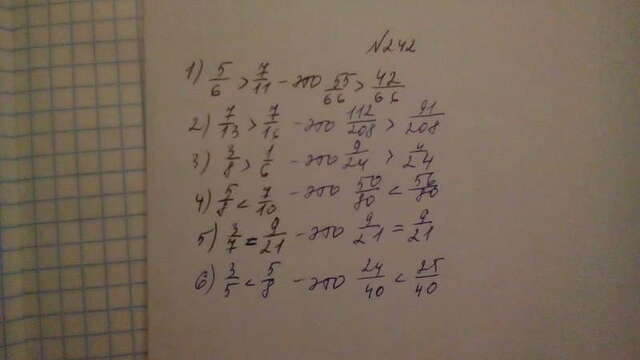 №242
1) 5/6 > 7/11 - это 55/66 > 42/66
2) 7/13 > 7/16 - это 112/208 > 91/208
3) 3/8 > 1/6 - это 9/24 > 4/24
4) 5/8 < 7/10 - это 50/80 < 56/80
5) 3/7 = 9/21 - это 9/21 = 9/21
6) 3/5 < 5/8 - это 24/40 < 25/40